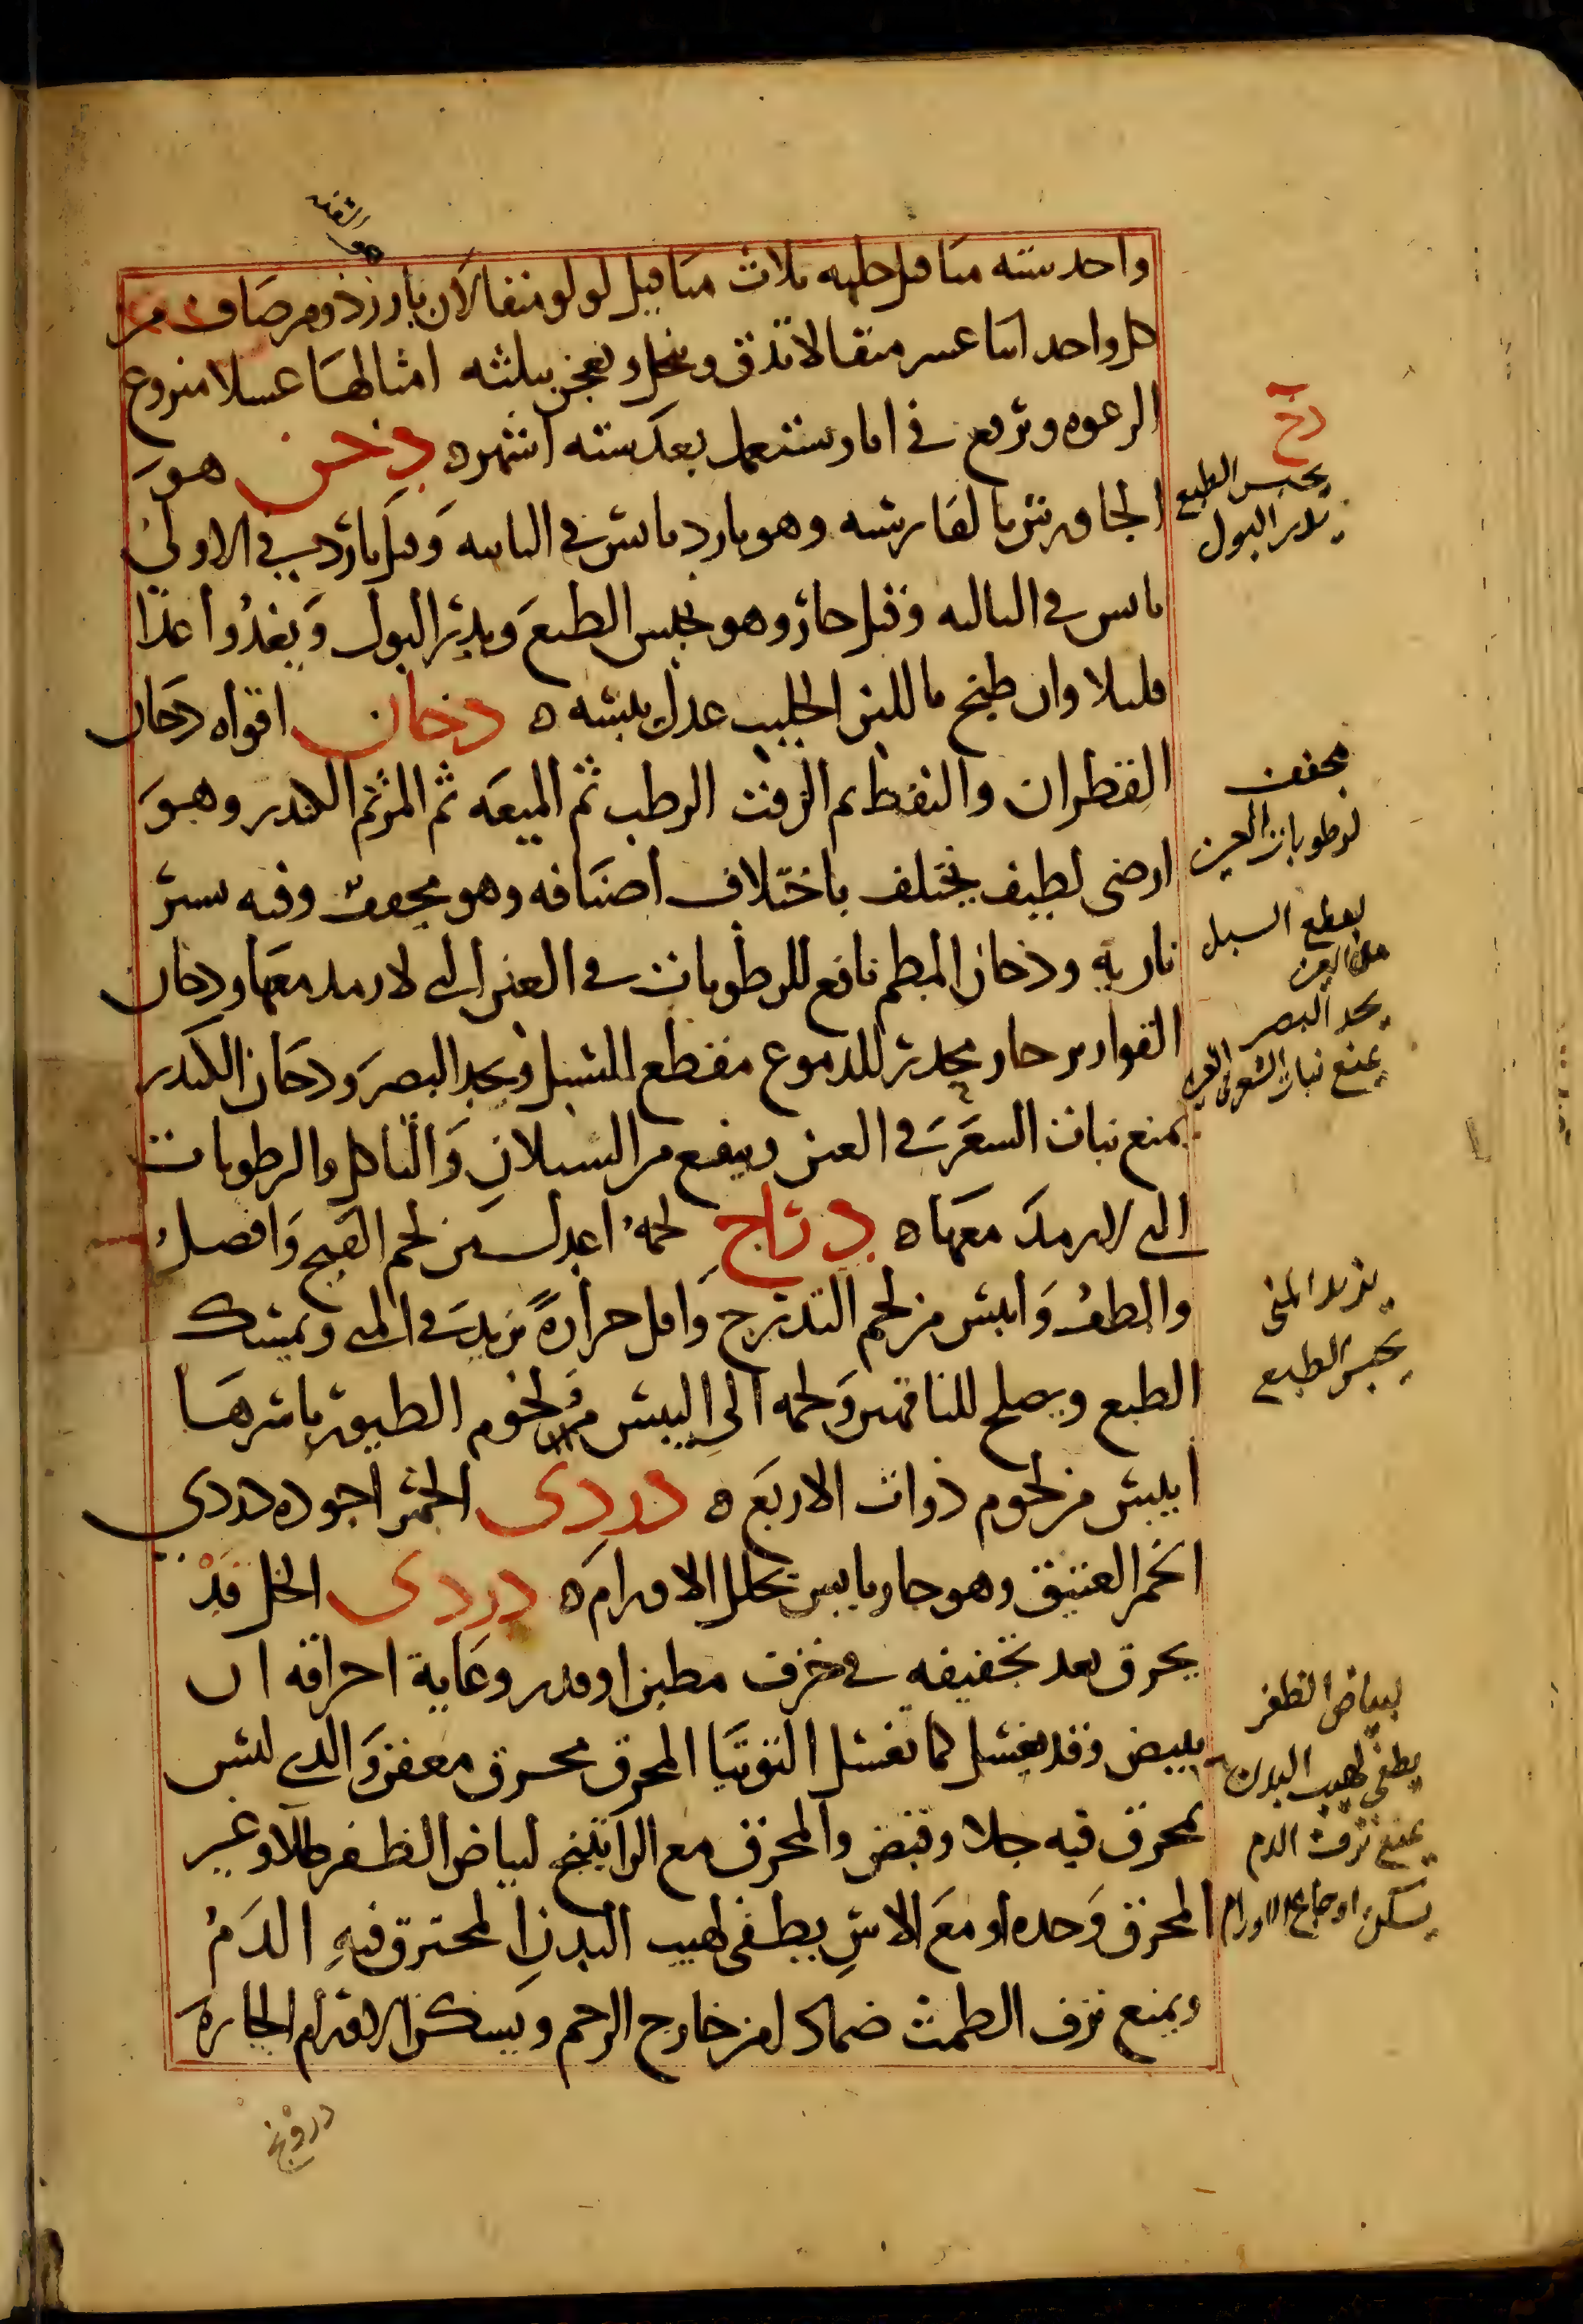 واحد ستة مثاقيل حلبه ثلاث مثاقيل لولو مثقالان بارزذ ومر صاف من
كل واحد اثنا عشر مثقالا تدق وتنخل وتعجن بثلثه امثالها عسلا منزوع
الرغوه وترفع في انا وستعمل بعد سته اشهر ه دخن هو
الجاورس بالفارسيه وهو بارد يابس في الثانيه وقيل بارد في الاولى
يابس في الثالثه وقيل حار وهو يحبس الطبع ويدر البول ويغذوا غذا
قليلا وان طبخ باللبن الحليب عدل يبسه ه دخان اقواه دخان
القطران والنفط ثم الزفت الرطب ثم الميعه ثم المر ثم الكندر وهو
ارضى لطيف يختلف باختلاف اصنافه وهو مجفف وفيه يسير
ناريه ودخان البطم نافع للرطوبات في العين التى لا رمد معها ودخان
القوارير حار محدر للدموع مقطع للسبل ويحد البصر ودخان الكندر
يمنع نبات الشعر في العين وينفع من السيلان والتاكل والرطوبات
التى لا رمد معها ه دراج لحمه اعدل من لحم القبج وافضل
والطف وايبس من لحم التدرج واقل حرارة يزيد في المنى ويمسك
الطبع ويصلح للناقهين ولحمه الى اليبس ولحوم الطيور باسرها
ايبس من لحوم ذوات الاربع ه دردى الخمر اجوده دردي
الخمر العتيق وهو حار يابس يحلل الاورام ه دردى الخل قد
يحرق بعد تجفيفه في خزف مطين او قدر وغاية احراقه ان
يبيض وقد يغسل كما تغسل التوتيا المحرق محرق معفن والذي ليس
بمحرق فيه جلا وقبض والمحرق مع الراتينج لبياض الظفر طلا وغير
المحرق وحده او مع الاس يطفى لهيب البدن المحترق فيه الدم
ويمنع نزف الطمث ضمادا من خارج الرحم ويسكن الاورام الحاره
دخ
يحبس الطبع
يدر البول
مجفف
لرطوبات العين
يقطع السبل
من العين
يحد البصر
يمنع نبات الشعر في العين
يزيد المنى
يحبس الطبع
لبياض الظفر
يطفى لهيب البدن
يمنع نزف الدم
يسكن اوجاع الاورام
درونج